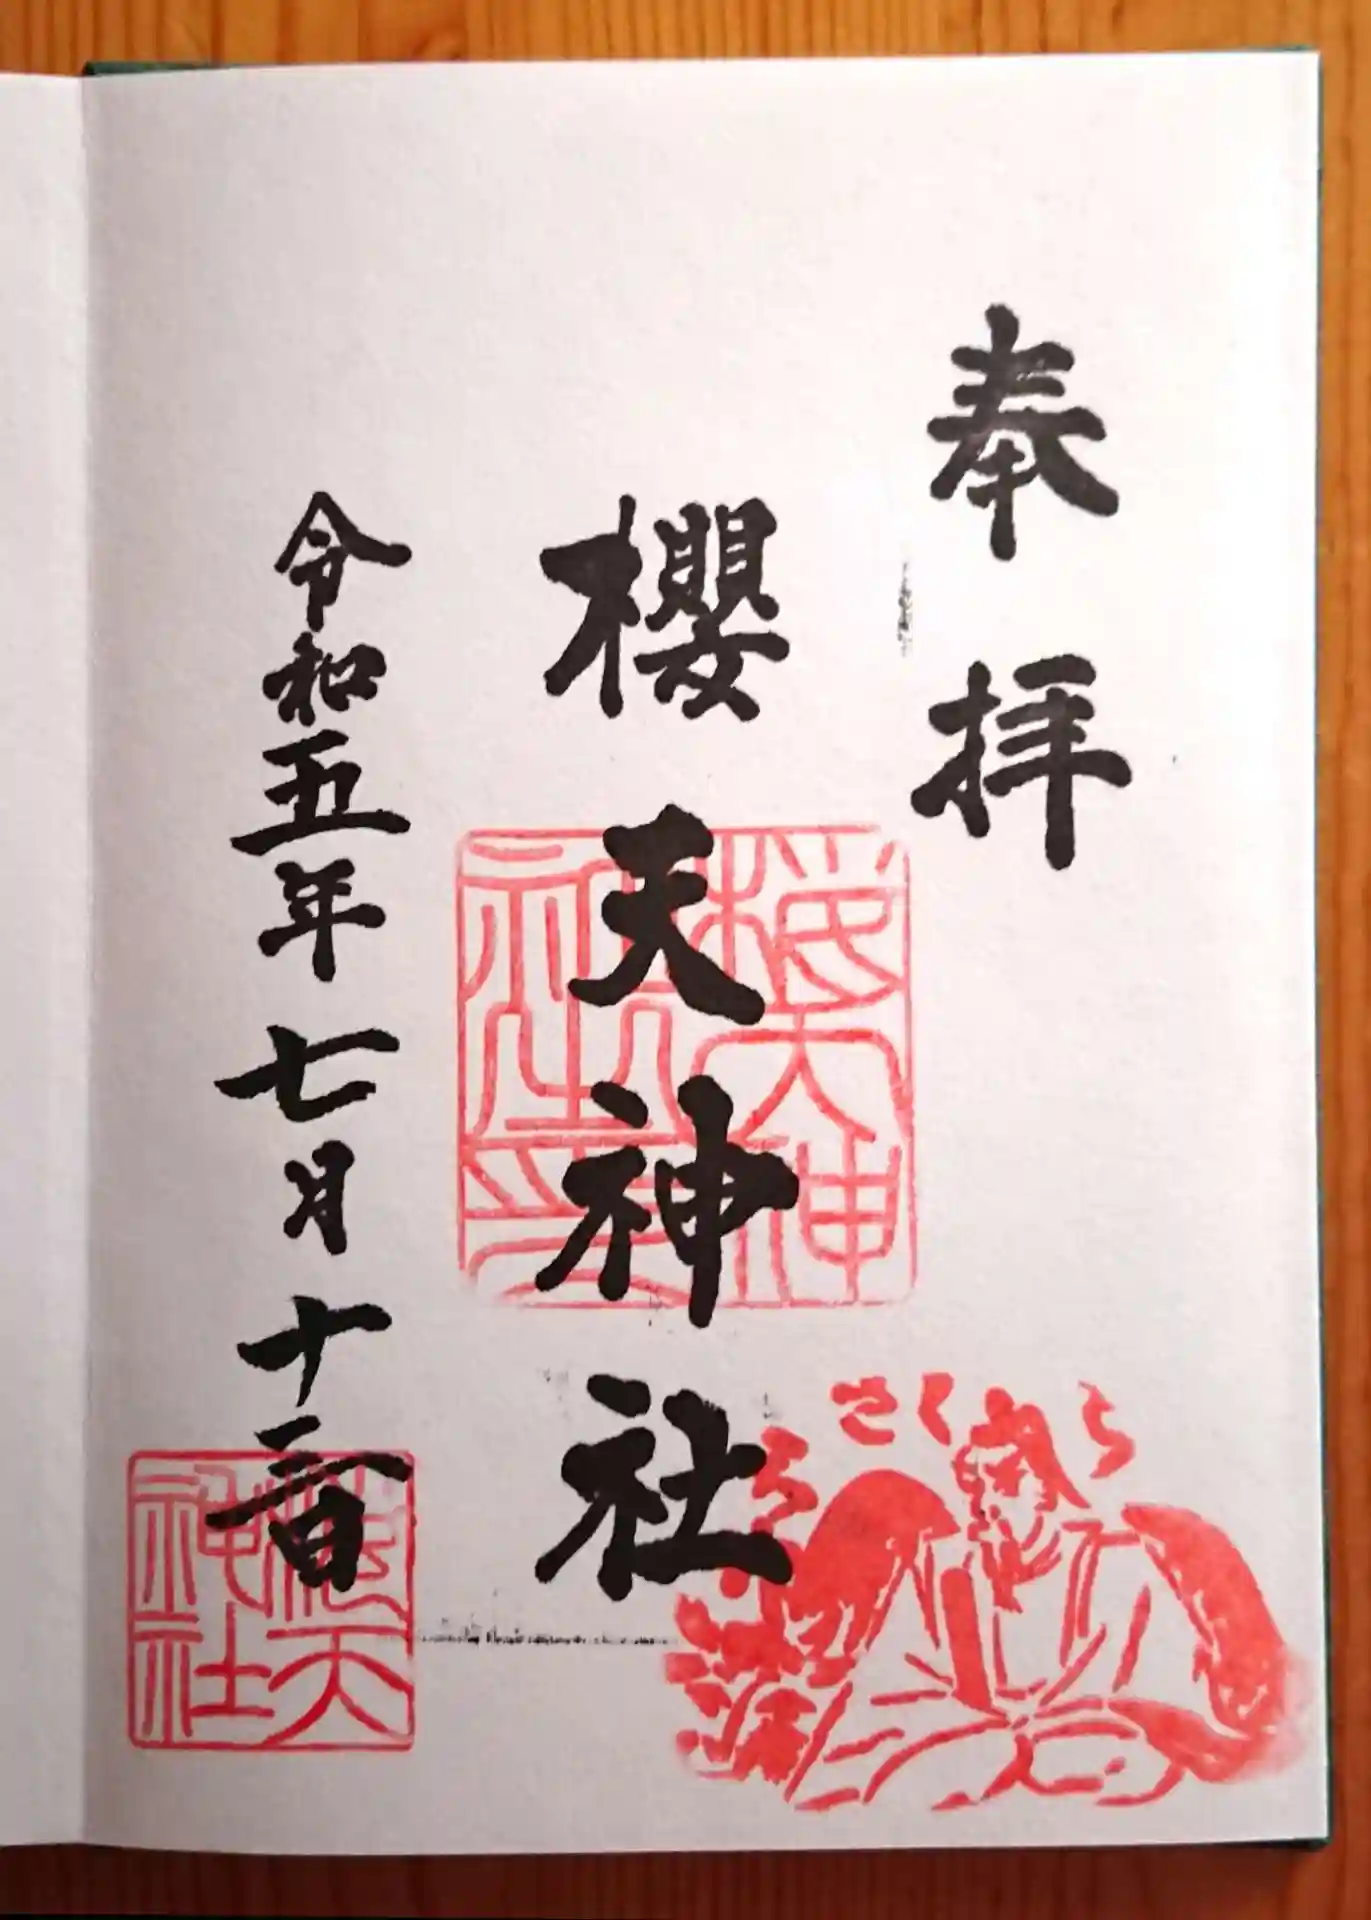 奉拝
櫻天神社
令和五年七月十二日
櫻天神
社印
櫻天
神社
さくら